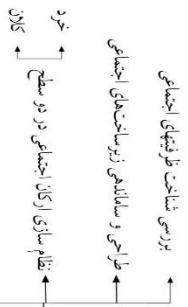 بررسی شناخت ظرفیتهای اجتماعی
طراحی و ساماندهی زیرساخت‌های اجتماعی
نظام سازی ارکان اجتماعی در دو سطح
خرد
کلان